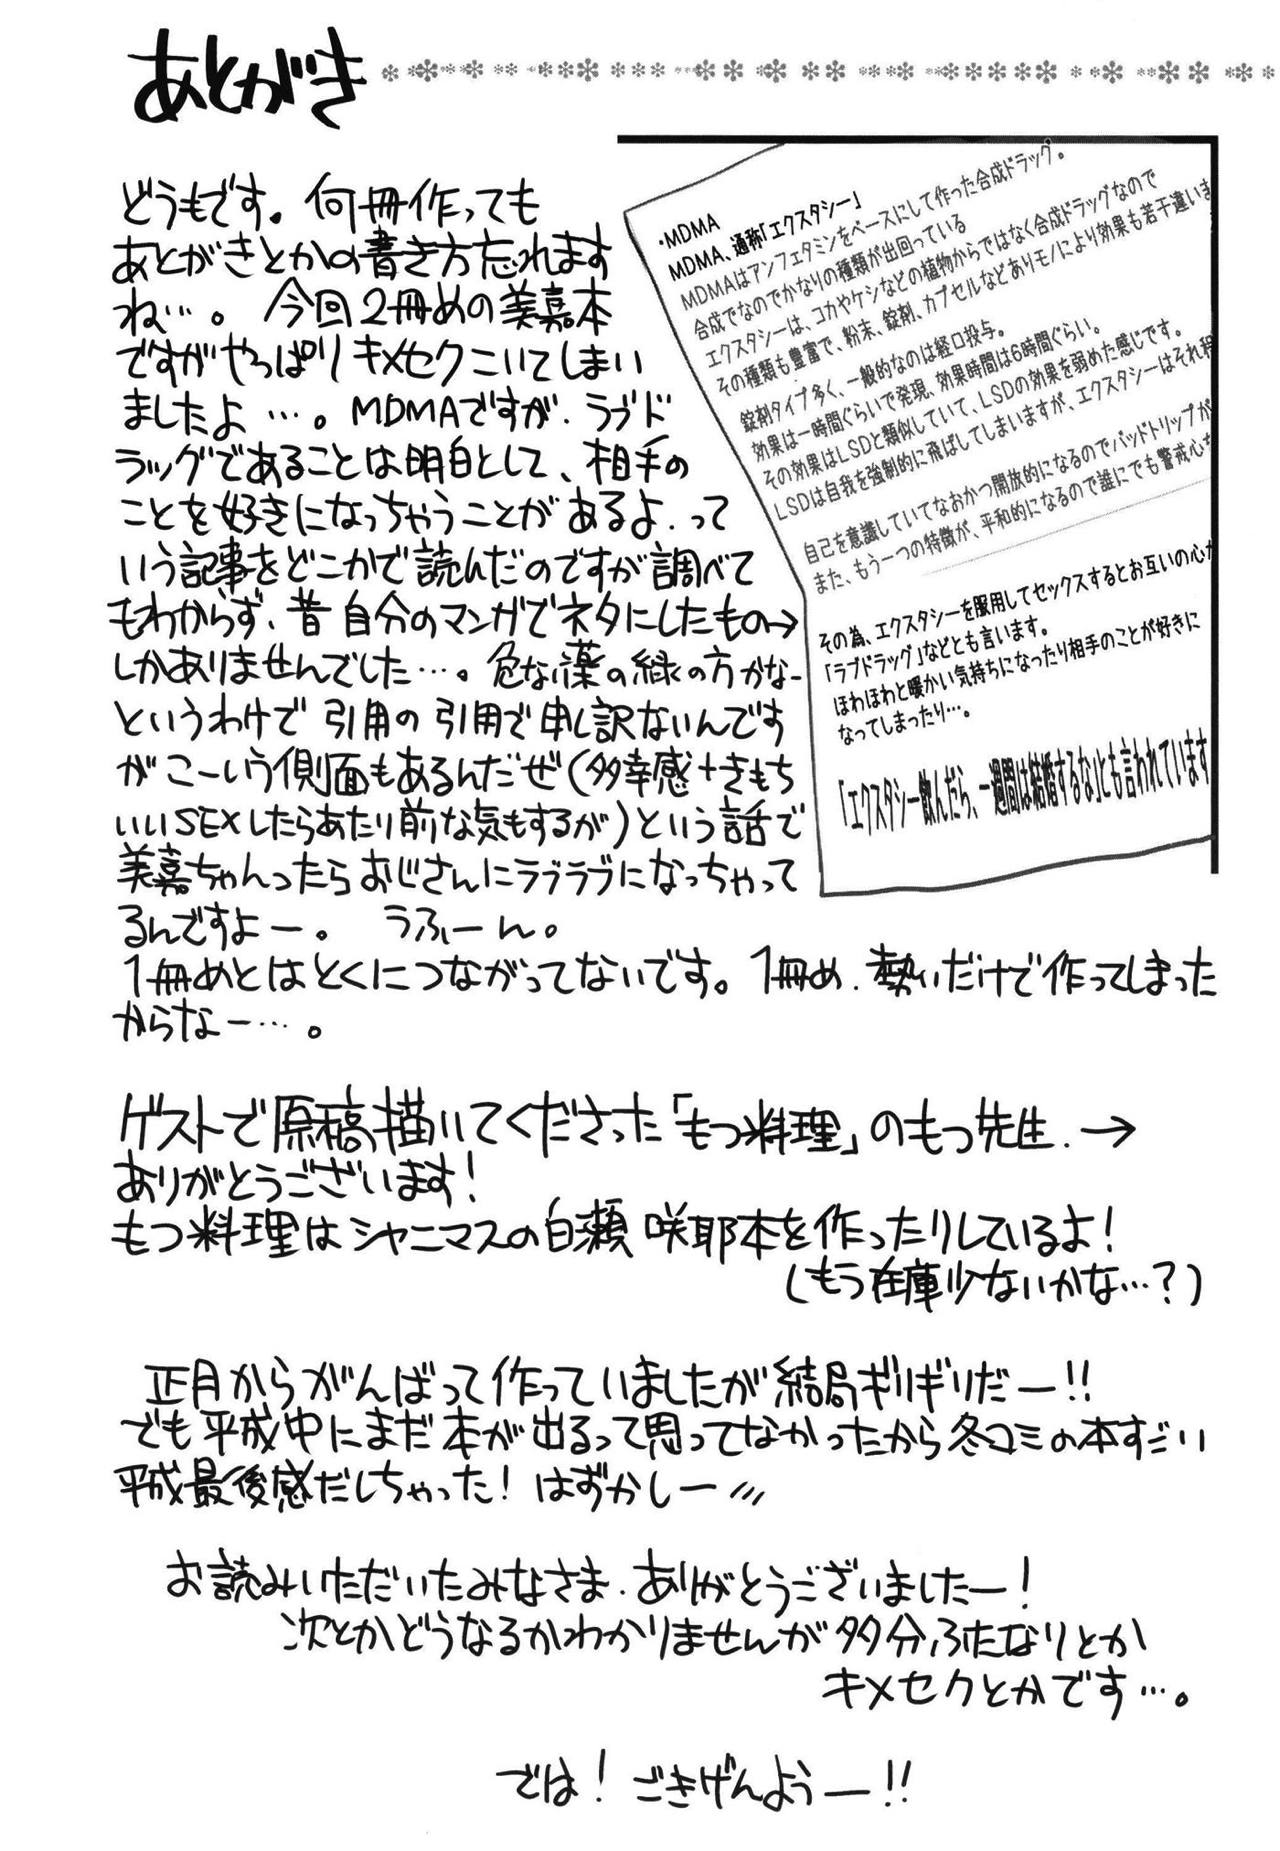 あとがき
どうもです。何冊作っても
あとがきとかの書き方忘れます
ね…。今回2冊めの美嘉本
ですがやっぱりキメセクこいてしまい
ましたよ…。MDMAですが、ラブド
ラッグであることは明白として、相手の
ことを好きになっちゃうことがあるよ、って
いう記事をどこかで読んだのですが調べて
もわからず、昔自分のマンガでネタにしたもの→
しかありませんでした…。危ない薬の縁の方かな-
というわけで引用の引用で申し訳ないんです
がこーいう側面もあるんだぜ(多幸感+きもち
いいSEXしたらあたり前な気もするが)という話で
美嘉ちゃんったらおじさんにラブラブになっちゃって
るんですよー。うふーん。
1冊めとはとくにつながってないです。1冊め、勢いだけで作ってしまった
からなー…。
・MDMA
MDMA、通称「エクスタシー」
MDMAはアンフェタミンをベースにして作った合成ドラッグ。
合成でなのでかなりの種類が出回っている
エクスタシーは、コカやケシなどの植物からではなく合成ドラッグなので
その種類も豊富で、粉末、錠剤、カプセルなどありモノにより効果も若干違いま
錠剤タイプ多く、一般的なのは経口投与。
効果は一時間ぐらいで発現、効果時間は6時間ぐらい。
その効果はLSDと類似していて、LSDの効果を弱めた感じです。
LSDは自我を強制的に飛ばしてしまいますが、エクスタシーはそれ程
自己を意識していてなおかつ開放的になるのでバッドトリップが
また、もう一つの特徴が、平和的になるので誰にでも警戒心を
その為、エクスタシーを服用してセックスするとお互いの心が
「ラブドラッグ」などとも言います。
ほわほわと暖かい気持ちになったり相手のことが好きに
なってしまったり…。
「エクスタシー飲んだら、一週間は結婚するな」とも言われています
ゲストで原稿描いてくださった「もつ料理」のもつ先生、→
ありがとうございます!
もつ料理はシャニマスの白瀬咲耶本を作ったりしているよ!
(もう在庫少ないかな…?)
正月からがんばって作っていましたが結局ギリギリだー!!
でも平成中にまだ本が出るって思ってなかったから冬コミの本すごい
平成最後感だしちゃった!はずかしー〃
お読みいただいたみなさま、ありがとうございましたー!
次とかどうなるかわかりませんが多分ふたなりとか
キメセクとかです…。
では!ごきげんようー!!